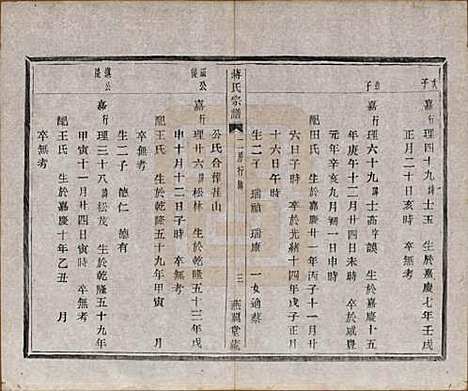 長子
嘉行理四十九諱士玉 生於嘉慶七年壬戌
正月二十日亥時 卒無考
次子
嘉行理六十九諱士高 諱 生於嘉慶十五
年庚午十二月廿四日未時 卒於咸豐
元年辛亥九月初一日申時
配田氏 生於嘉慶廿一年丙子十一月廿
六日子時 卒於光緒十四年戊子正月
十六日午時
生二子 瑞禎 瑞康 一女適蔡
蔣氏宗譜 卷 三 燕翼堂
公氏合葬荘山
公長
嘉行理廿六諱松林 生於乾隆五十三年戊
申十月十二日子時 卒無考
配王氏 生於乾隆五十九年甲寅 月
生二子 德仁 德有
公長
嘉行理三十八諱松茂 生於乾隆五十九年
甲寅十一月廿四日寅時 卒無考
配王氏 生於嘉慶十年乙丑 月
卒無考